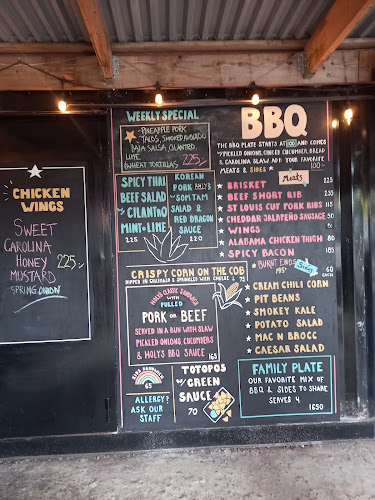 CHICKEN
WINGS
SWEET
CAROLINA
HONEY
MUSTARD
225,-
SPRING ONION
WEEKLY SPECIAL
PINEAPPLE PORK
TACOS, SMOKED AVOCADO
BAJA SALSA, CILANTRO,
LIME
(WHEAT TORTILLAS)
225,-
SPICY THAI
BEEF SALAD
CILANTRO
MINT & LIME
225
KOREAN
PORK BELLY
SOMTAM
SALAD &
RED DRAGON
SAUCE
220
CRISPY CORN ON THE COB
75
HOLYS CLASSIC SANDWICH
WITH
PULLED
PORK OR BEEF
SERVED IN A BUN WITH SLAW
PICKLED ONIONS, CUCUMBERS
& HOLYS BBQ SAUCE
165
65
ALLERGY?
ASK OUR
STAFF
TOTOPOS
W/ GREEN
SAUCE
70
BBQ
THE BBQ PLATE STARTS AT 100 AND COMES
W/ PICKLED ONIONS, PICKLED CUCUMBER, BREAD
& CAROLINA SLAW ADD YOUR FAVORITE
MEATS & SIDES
100,-
MEATS
BRISKET 225
BEEF SHORT RIB
ST LOUIS CUT PORK RIBS 115
CHEDDAR JALAPEÑO SAUSAGE 50
WINGS
ALABAMA CHICKEN THIGH 80
SPICY BACON
BURNT ENDS
195
SIDES
60
EACH
CREAM CHILI CORN
PIT BEANS
SMOKEY KALE
POTATO SALAD
MAC N BROCC
CAESAR SALAD
FAMILY PLATE
OUR FAVORITE MIX OF
BBQ & SIDES TO SHARE
SERVES 4
1650